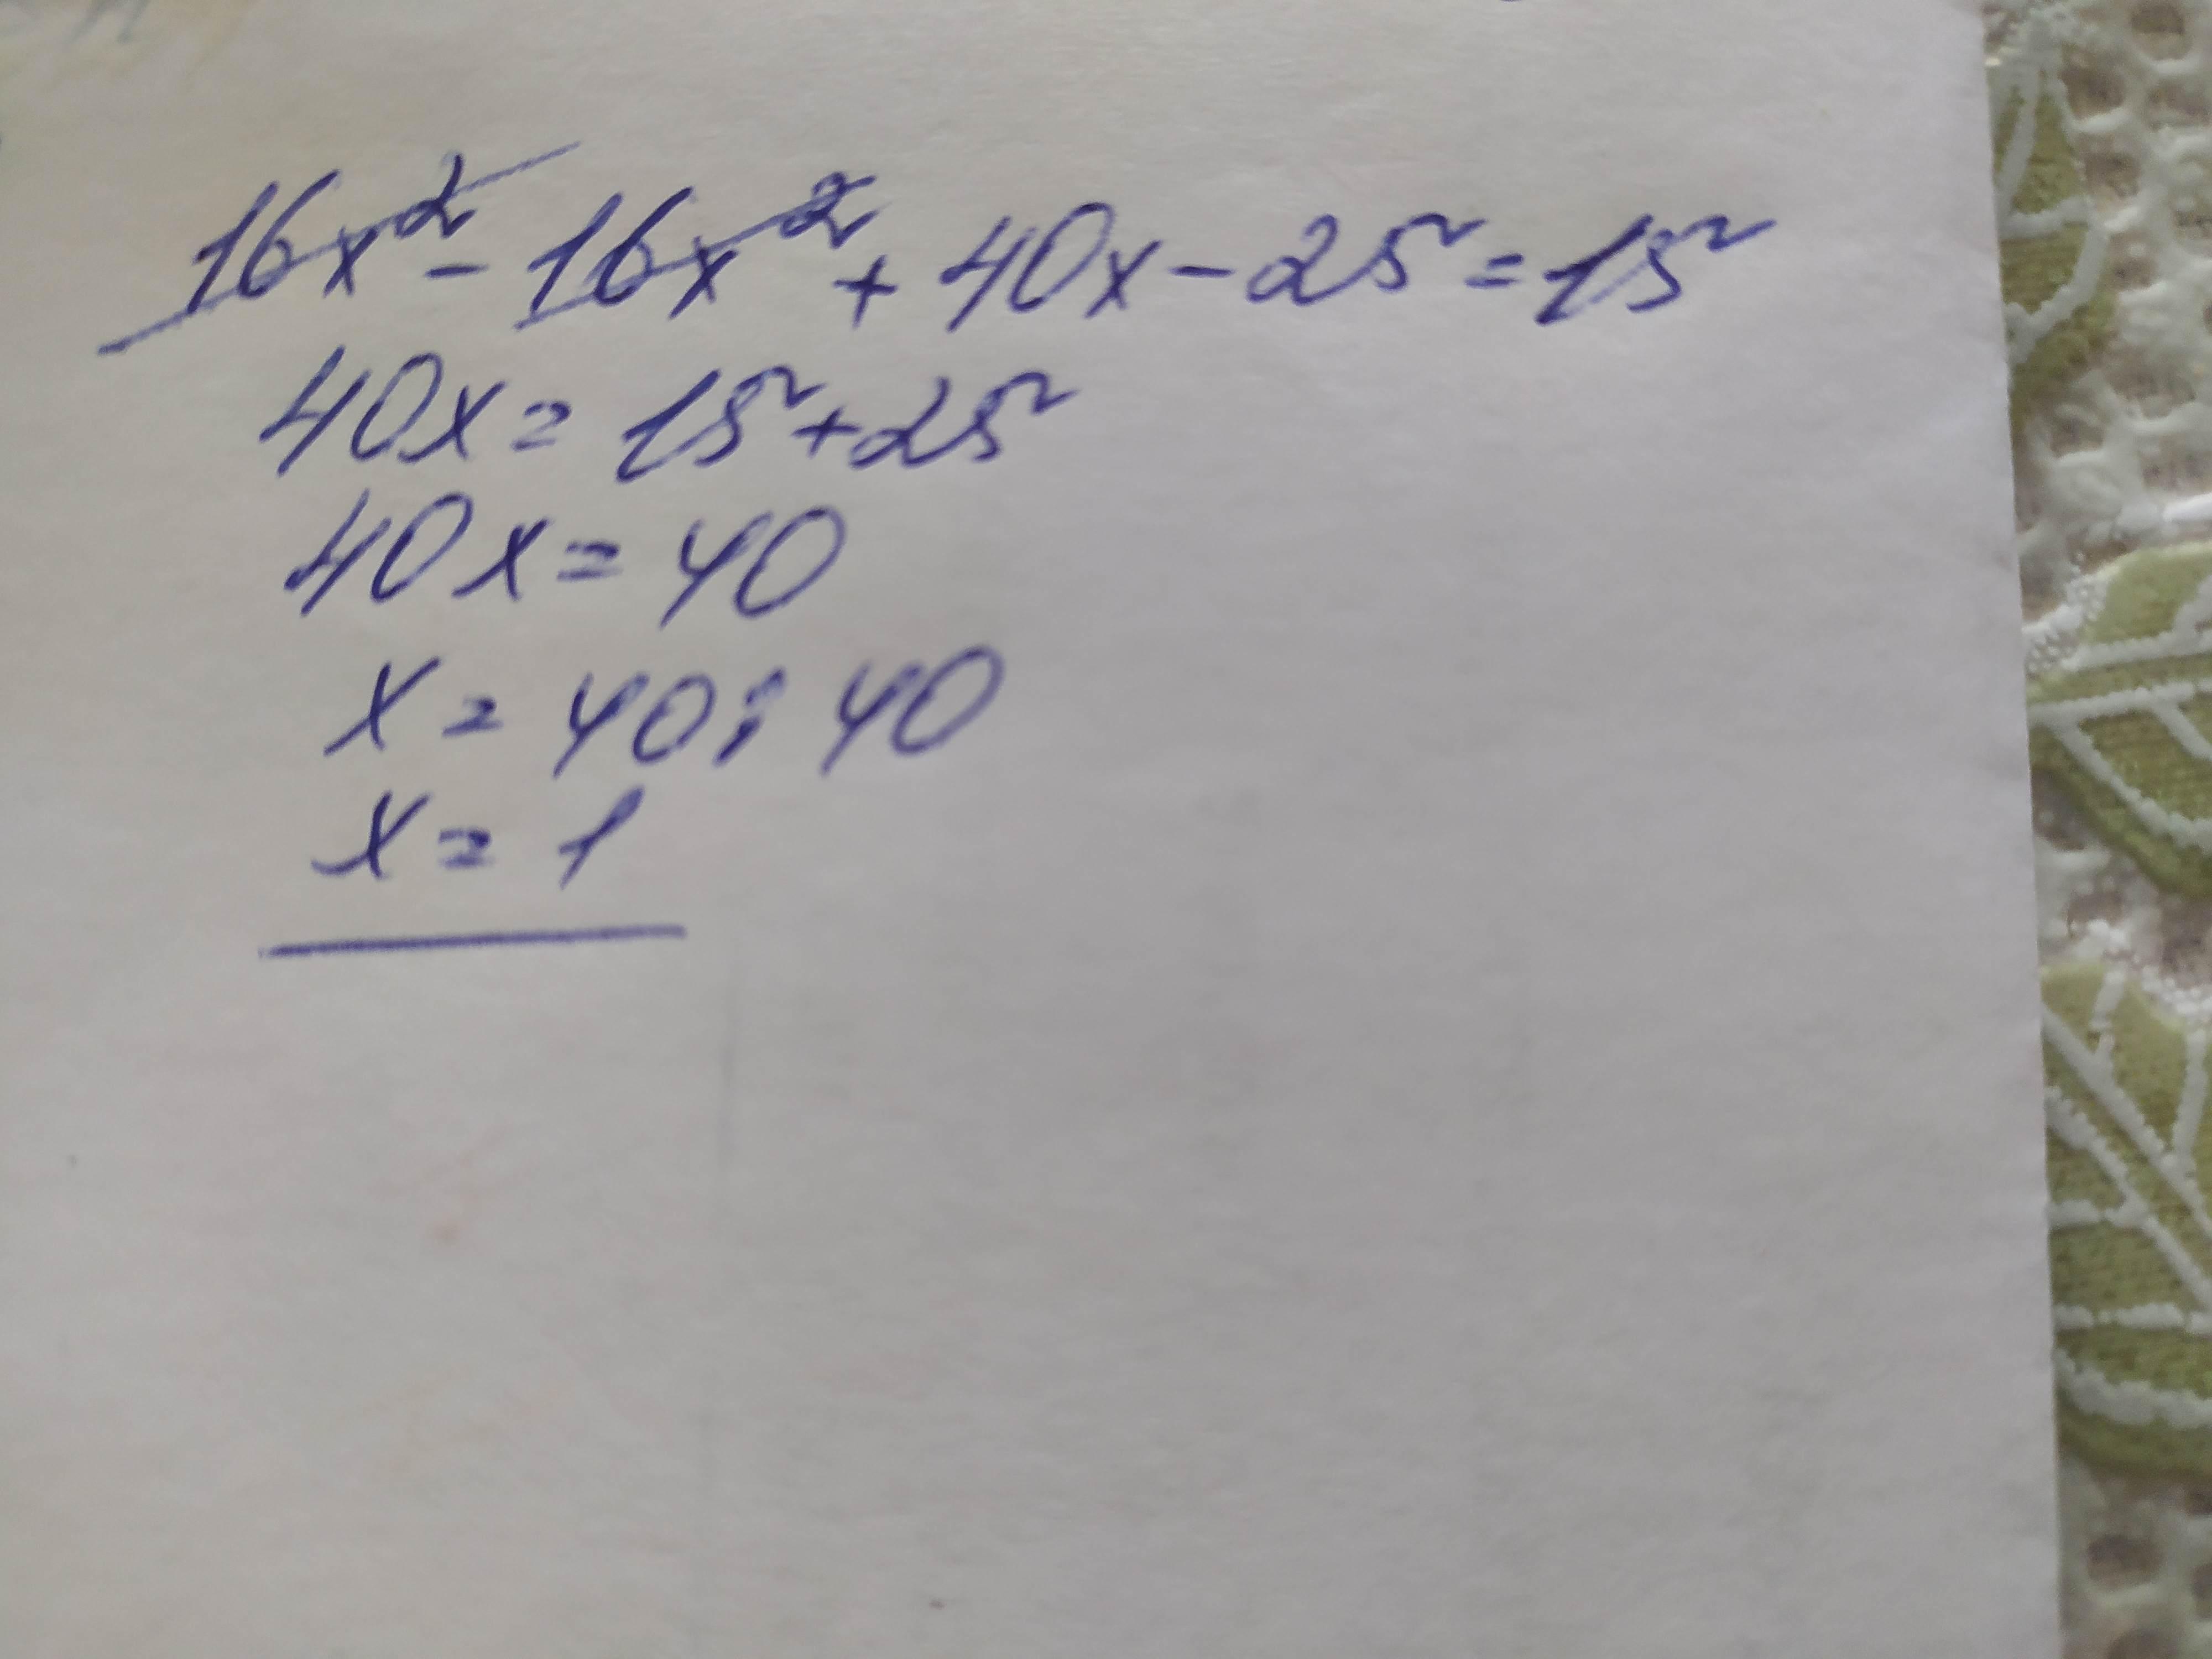 16x² - 16x² + 40x - 25 = 15
40x = 15 + 25
40x = 40
x = 40 : 40
x = 1